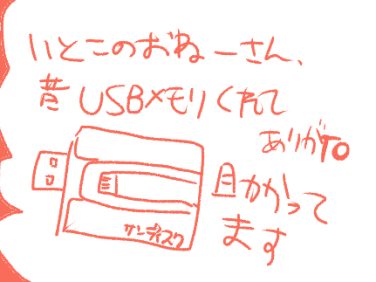 いとこのおねーさん、
昔USBメモリくれて
ありがTO
サンディスク
助かって
ます